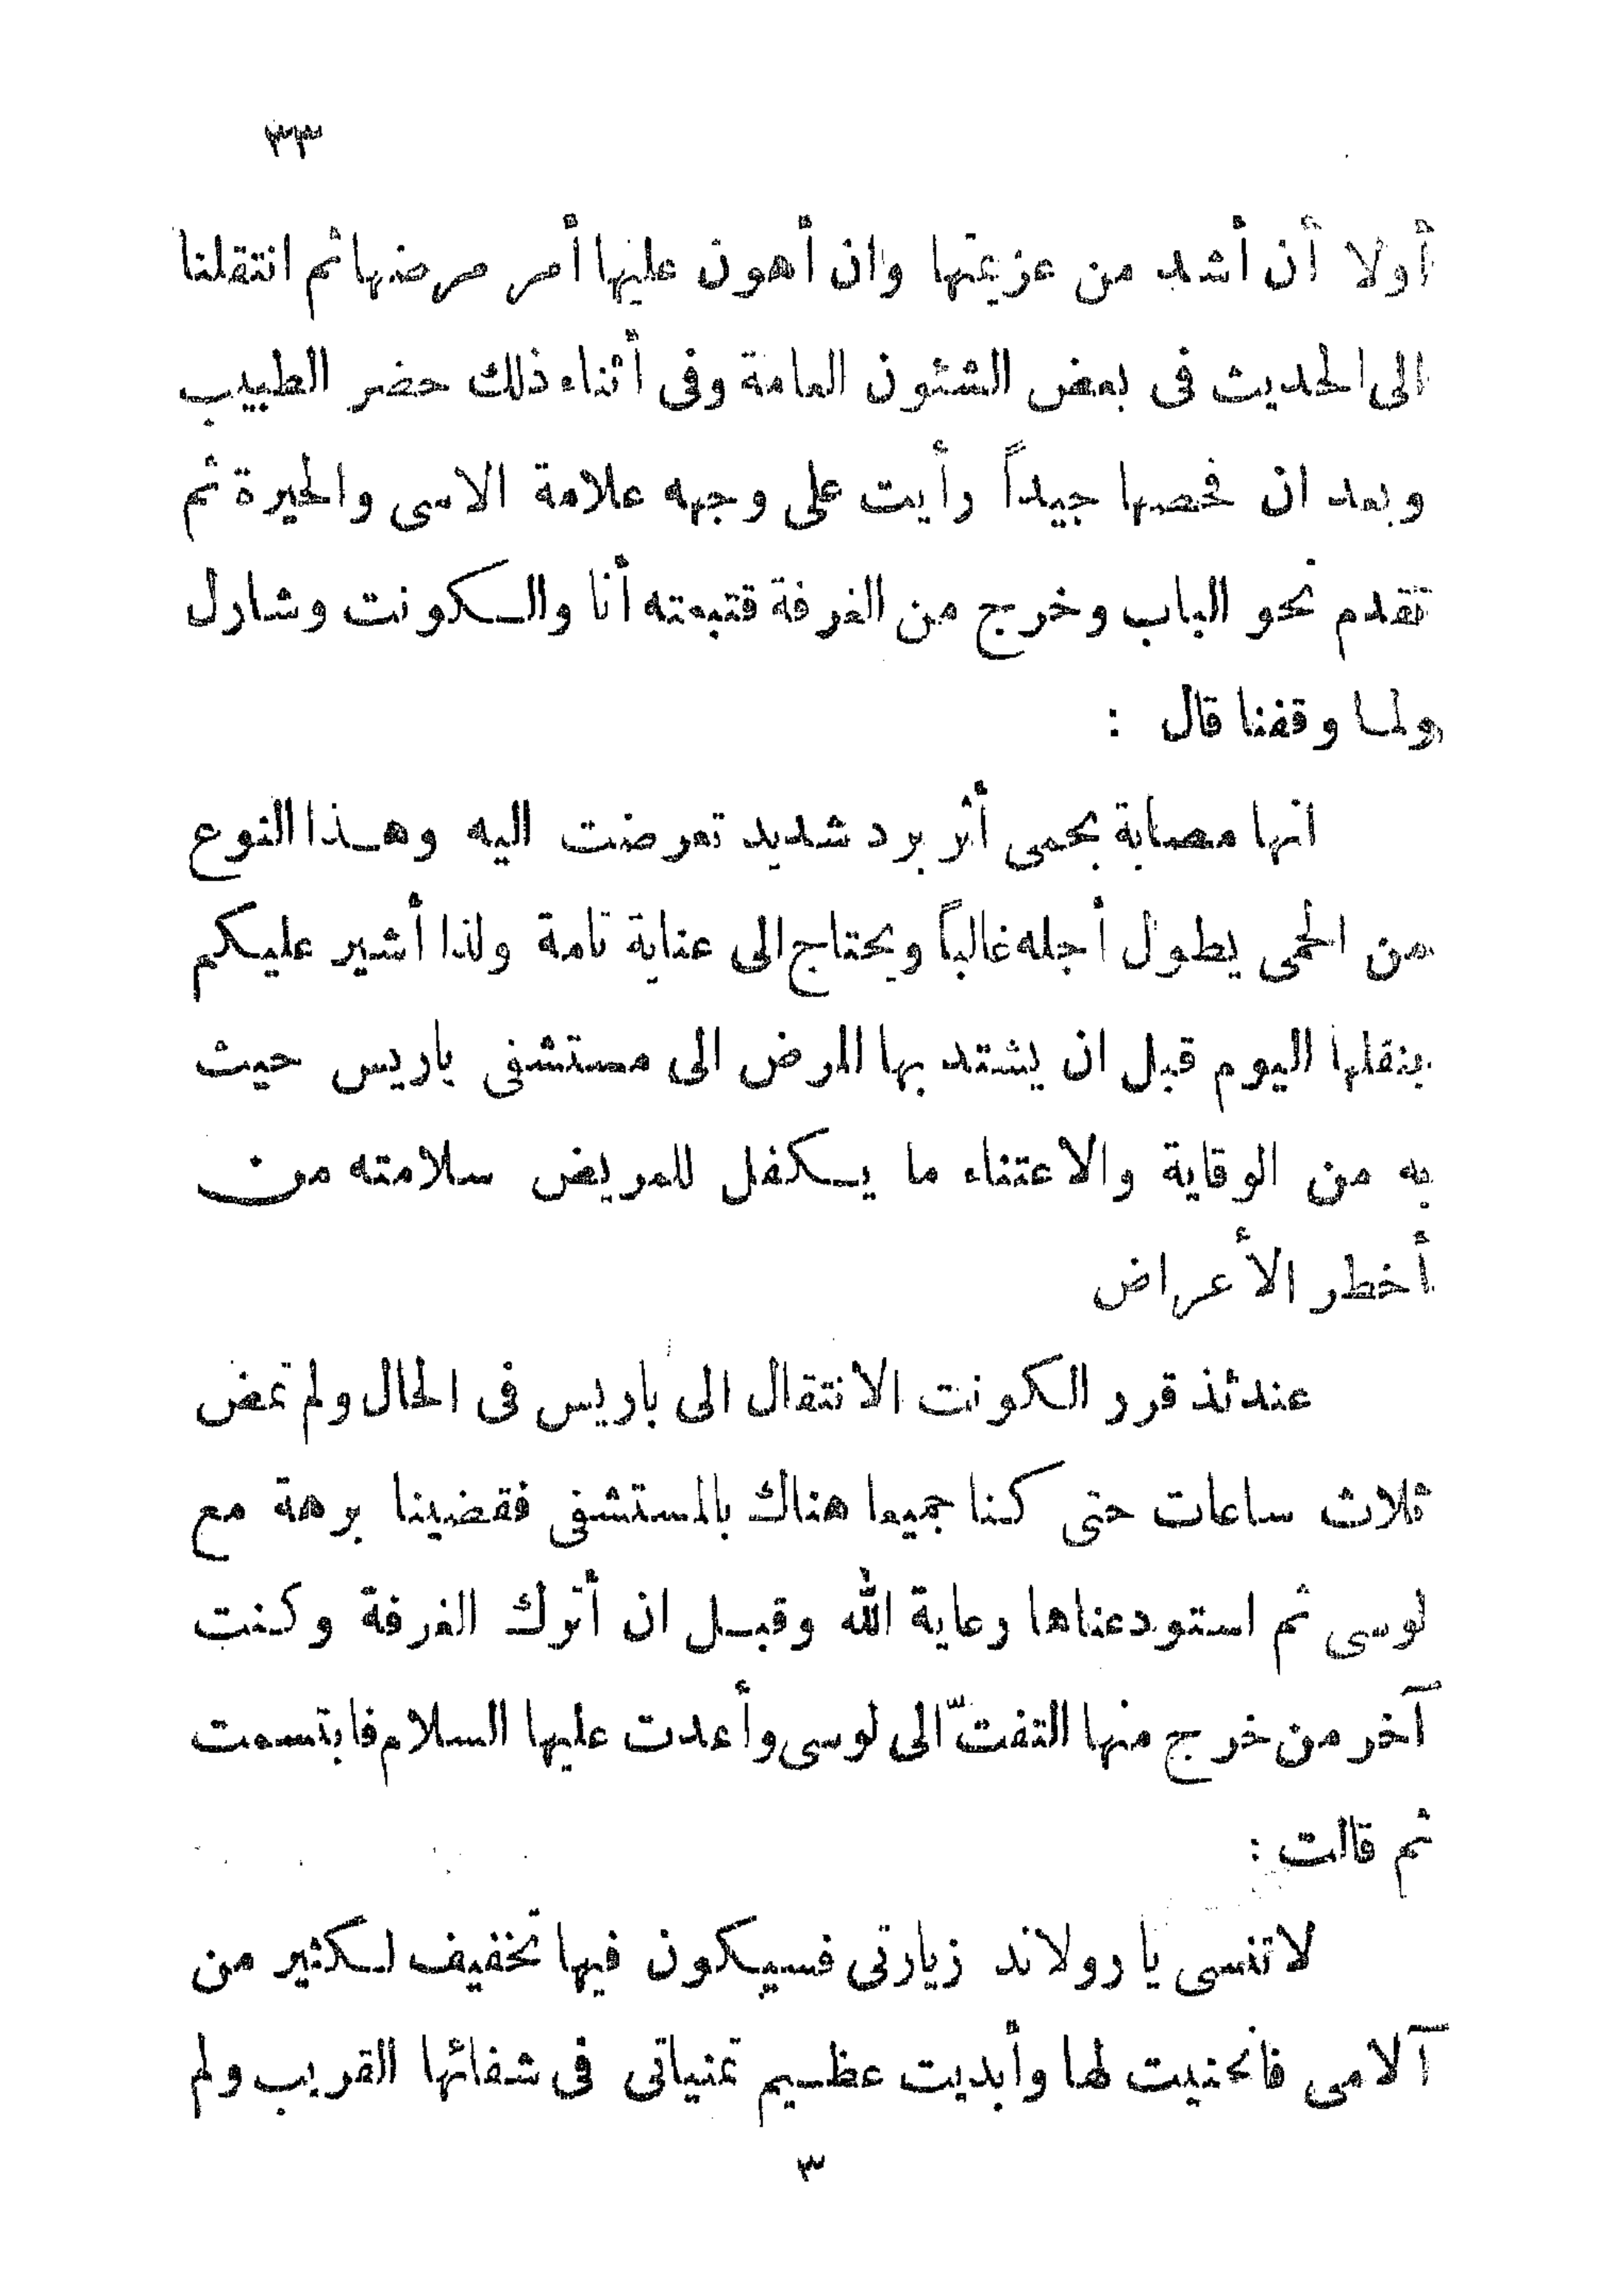 ٣٣
أولا أن أشد من عزيمتها وان أهون عليها أمر مرضها ثم انتقلنا
الى الحديث فى بعض الشئون العامة وفى أثناء ذلك حضر الطبيب
وبعد ان فحصها جيداً رأيت على وجهه علامة الاسى والحيرة ثم
تقدم نحو الباب وخرج من الغرفة قتبعته أنا والكونت وشارل
ولما وقفنا قال :
انها مصابة بحمى أثر برد شديد تعرضت اليه وهذا النوع
من الحمى يطول أجله غالباً ويحتاج الى عناية تامة ولذا أشير عليكم
بنقلها اليوم قبل ان يشتد بها المرض الى مستشفى باريس حيث
به من الوقاية والاعتناء ما يكفل للمريض سلامته من
أخطر الأعراض
عندئذ قرر الكونت الانتقال الى باريس فى الحال ولم تمض
ثلاث ساعات حتى كنا جميعا هناك بالمستشفى فقضينا برهة مع
لوسى ثم استودعناها رعاية الله وقبل ان أترك الغرفة وكنت
آخر من خرج منها التفتّ الى لوسى وأعدت عليها السلام فابتسمت
ثم قالت :
لا تنسى يا رولاند زيارتى فسيكون فيها تخفيف لكثير من
آلامى فانحنيت لها وأبديت عظيم تمنياتى فى شفائها القريب ولم
٣